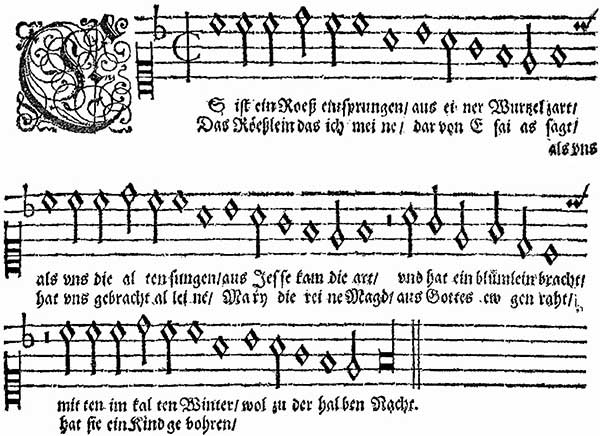 ES ist ein Roeß entsprungen/ aus ei ner Wurtzel zart/
Das Röeßlein das ich mei ne/ dar von E sai as sagt/
als vns
als vns die al ten sungen/ aus Jesse kam die art/ vnd hat ein blümlein bracht/
hat vns gebracht al lei ne/ Mary die rei ne Magd/ aus Gottes ew gen raht/
mit ten im kal ten Winter/ wol zu der hal ben Nacht.
hat sie ein Kind ge bohren/